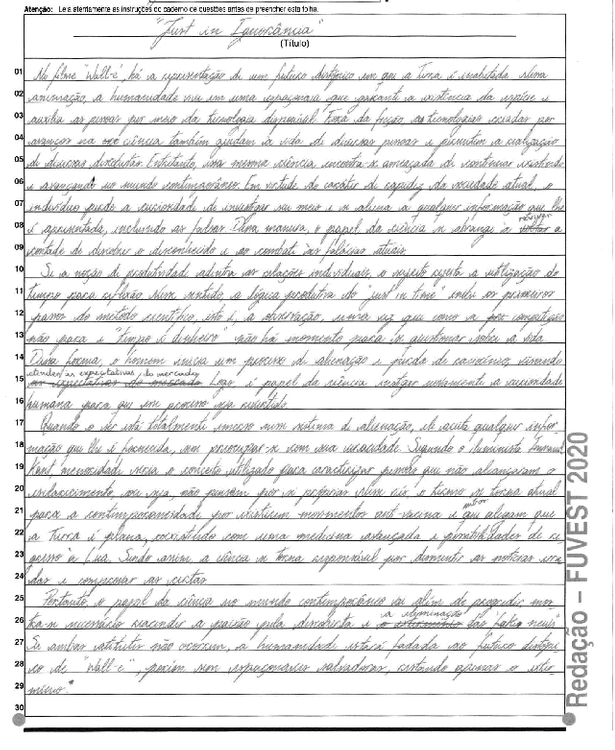 Atenção: Leia atentamente as instruções do caderno de questões antes de preencher esta folha.
"Just in Ignorância"
(Título)
01 No filme "Wall-e", há a representação de um futuro distópico em que a Terra é inabitada. Nessa
02 animação, a humanidade vive em uma espaçonave que garante a existência da espécie e
03 auxilia as pessoas por meio da tecnologia Fora da ficção, as tecnologias criadas por
04 avanços na ciência também ajudam a vida de diversas pessoas e permitem a realização
05 de diversas descobertas. Entretanto, essa mesma ciência, encontra-se ameaçada de continuar existindo
06 e avançando no mundo contemporâneo. Em virtude do caráter de da sociedade atual, o
07 indivíduo perde a curiosidade de investigar seu meio e se aliena a qualquer informação que lhe
08 é apresentada, incluindo as falsas. Dessa maneira, o papel da ciência se abrange à a
09 vontade de descobrir o desconhecido e ao combate às falácias atuais.
10 Se a noção de produtividade adentra as relações individuais, o sujeito rejeita a utilização do
11 tempo para reflexão. Nesse sentido, a lógica produtiva do "just in time" os primeiros
12 passos do método científico, isto é, a observação, uma vez que como a competição
13 não para e "tempo é dinheiro" não há momento para se questionar sobre a vida.
14 Dessa forma, o homem inicia um processo de alienação e perda de consciência, visando
15 atender às expectativas do mercado. Logo é papel da ciência instigar novamente a curiosidade
16 humana para que esse processo seja revertido.
17 Quando o ser está totalmente imerso num sistema de alienação, ele aceita qualquer infor-
18 mação que lhe é fornecida, sem preocupar-se com sua veracidade. Segundo o iluminista Immanuel
19 Kant menoridade seria o conceito utilizado para caracterizar pessoas que não alcançaram o
20 esclarecimento, ou seja, não pensam por si próprias. Nesse viés, o termo se torna atual
21 para a contemporaneidade por existirem movimentos anti-vacina e outros que alegam que
22 a Terra é plana, coexistindo com uma medicina avançada e possibilidades de re-
23 gresso à Lua. Sendo assim, a ciência se torna responsável por desmentir as notícias erra-
24 das e comprovar as certas.
25 Portanto, o papel da ciência no mundo contemporâneo vai além de progredir, mos-
26 tra-se necessário reacender a paixão pela descoberta e a eliminação das "fake news".
27 Se ambas atitudes não ocorrem, a humanidade estará fadada ao futuro distópi-
28 co de "Wall-e", porém sem espaçonaves salvadoras, restando apenas o exter-
29 mínio.
30
Redação – FUVEST 2020